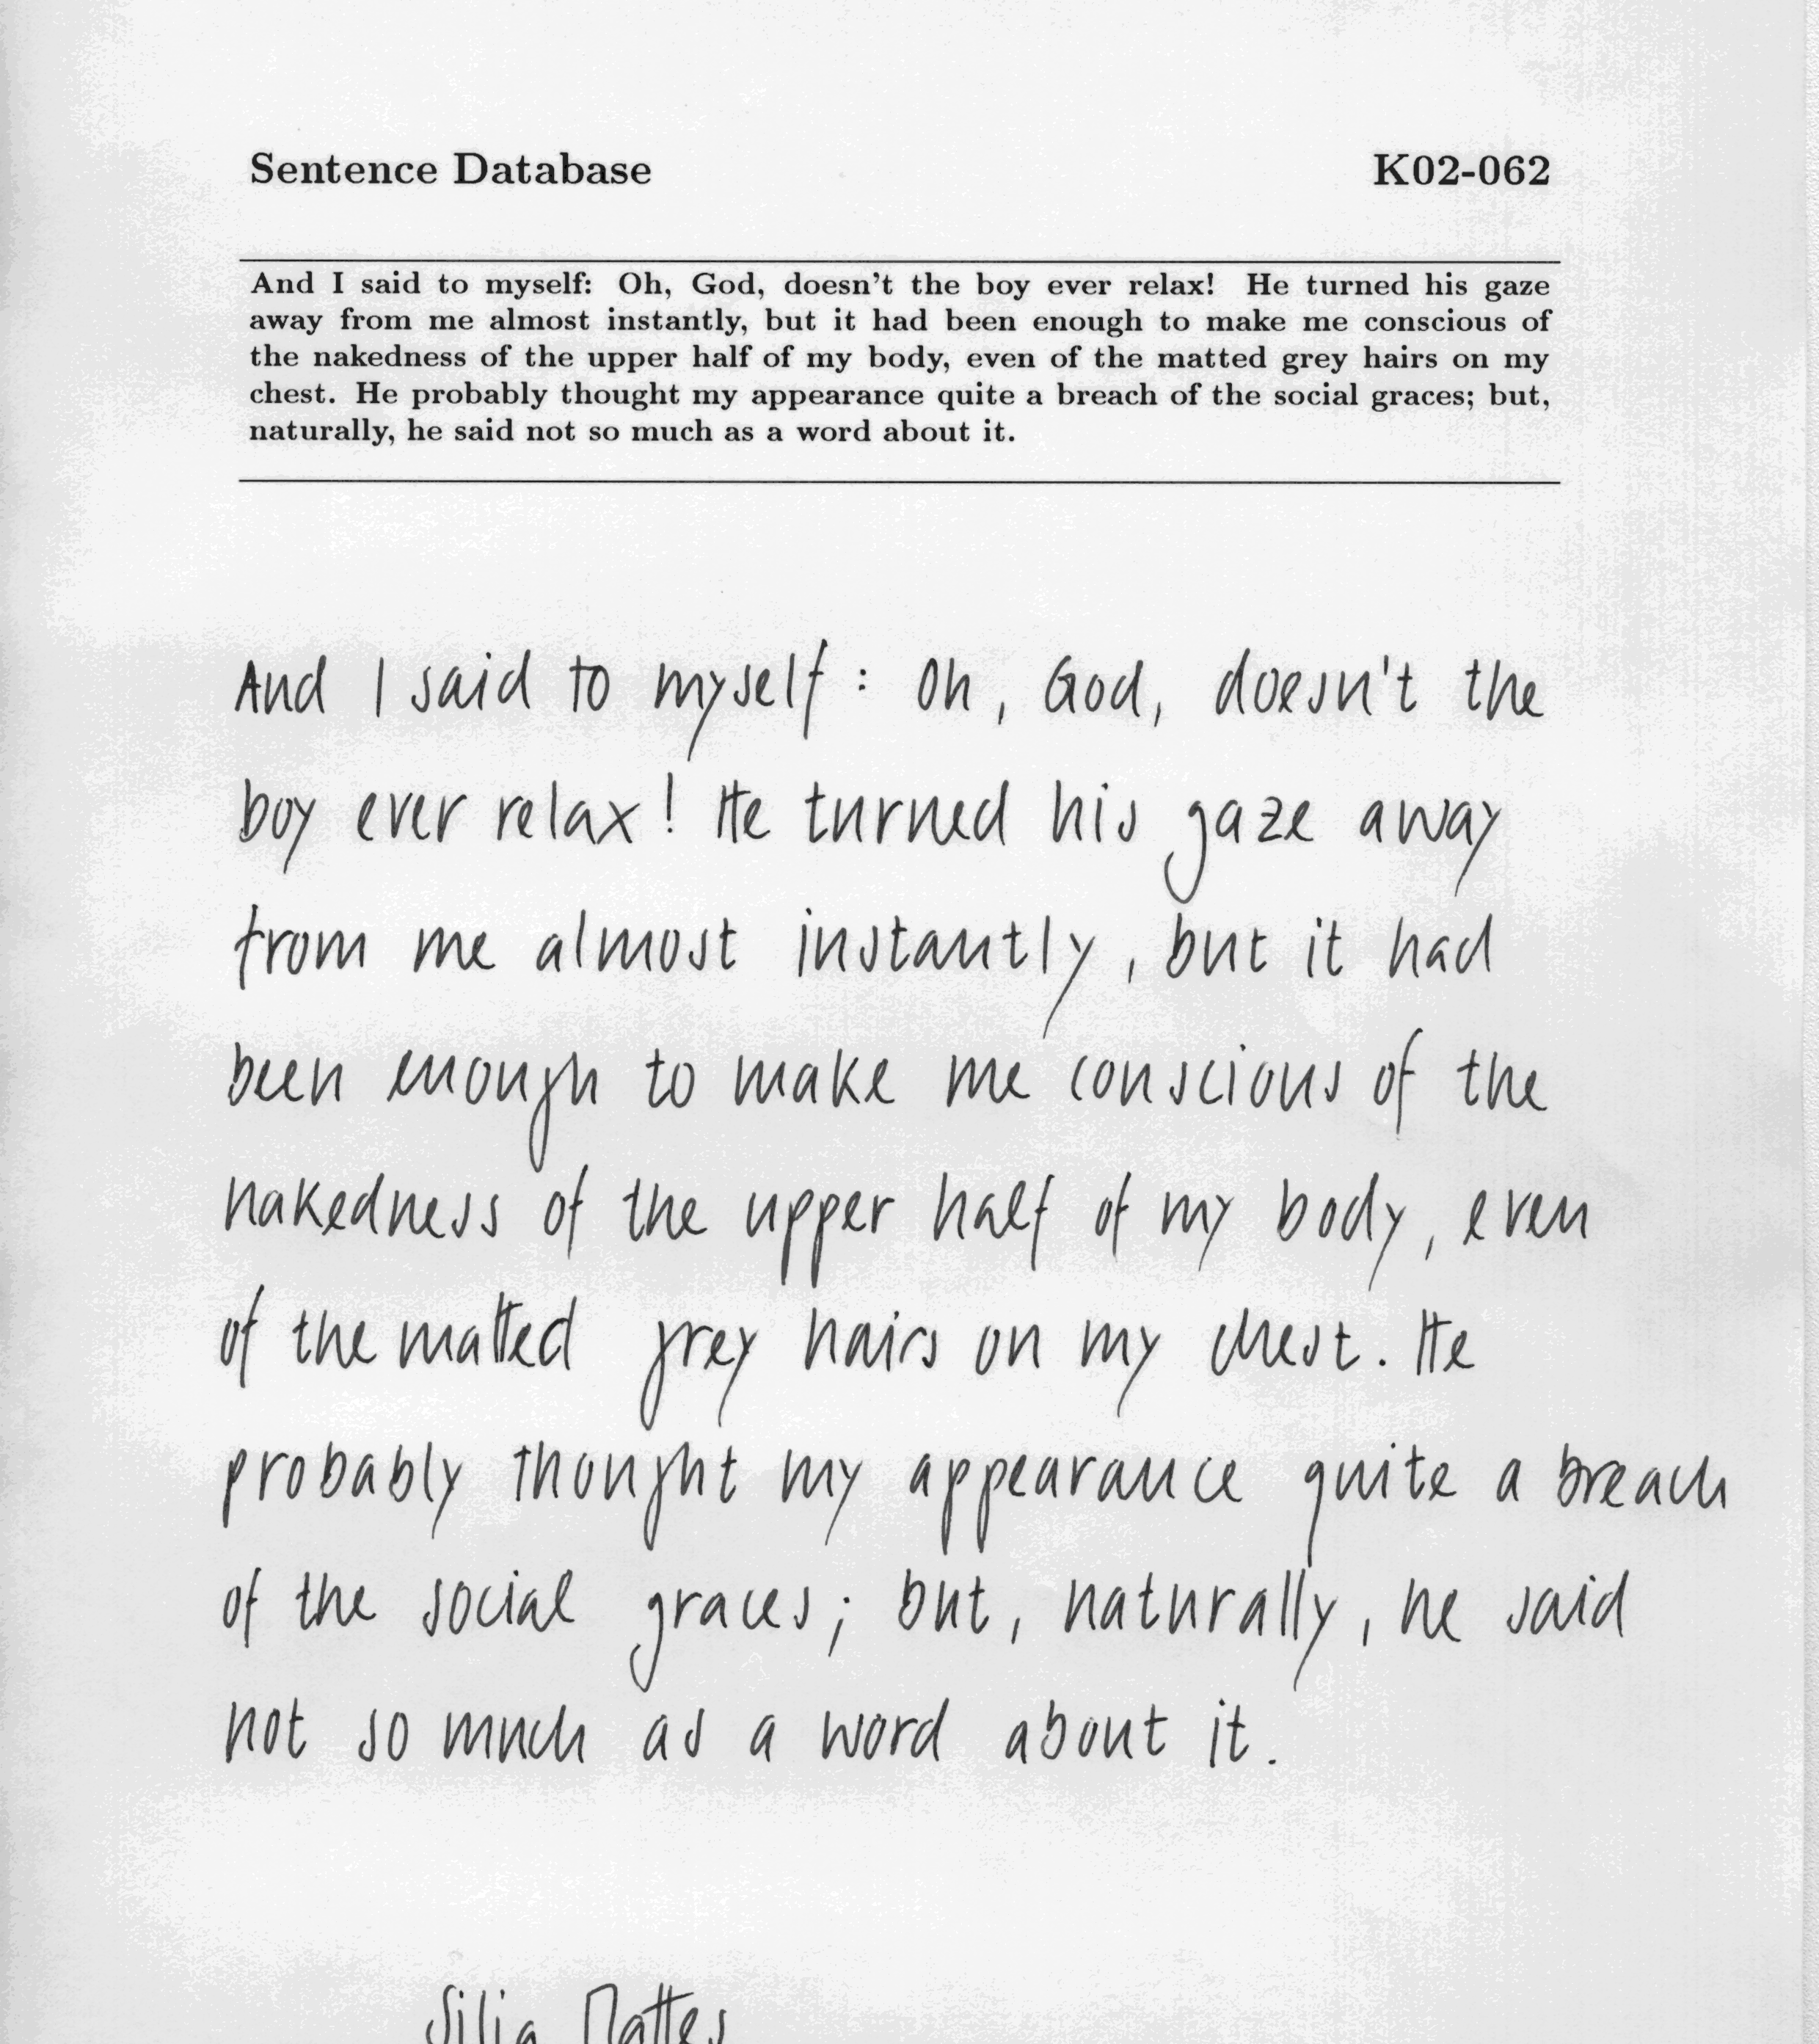 Sentence Database K02-062
And I said to myself: Oh, God, doesn't the boy ever relax! He turned his gaze
away from me almost instantly, but it had been enough to make me conscious of
the nakedness of the upper half of my body, even of the matted grey hairs on my
chest. He probably thought my appearance quite a breach of the social graces; but,
naturally, he said not so much as a word about it.
And I said to myself : Oh, God, doesn't the
boy ever relax! He turned his gaze away
from me almost instantly, but it had
been enough to make me conscious of the
nakedness of the upper half of my body, even
of the matted grey hairs on my chest. He
probably thought my appearance quite a breach
of the social graces; but, naturally, he said
not so much as a word about it.
Silia Mattes